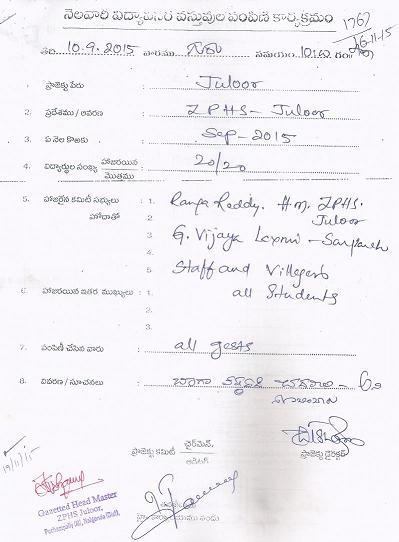 నెలవారి విద్యావసర వస్తువుల పంపిణి కార్యక్రమం
1767
26-11-15
తేది 10.9.2015 వారము గురు సమయం 10:00 గం||
1. ప్రాజెక్టు పేరు : Juloor
2. ప్రదేశము / ఆవరణ : ZPHS - Juloor
3. ఏ నెల కొఱకు : Sep - 2015
4. విద్యార్థుల సంఖ్య హాజరయిన / మొత్తము : 20/20
5. హాజరైన కమిటీ సభ్యులు 1. Ranga Reddy. H.M. ZPHS.
హోదాతో 2. Juloor
3 G. Vijaya Laxmi - Sarpanch
4
5 Staff and Villegers
6. హాజరయిన ఇతర ముఖ్యులు : 1. all Students
2.
3.
7. పంపిణీ చేసిన వారు : all gests
8. వివరణ / సూచనలు : బాగా చదవాలి - అని
ప్రాజెక్టు కమిటీ చైర్‌మెన్,
ఆడిటర్
ప్రాజెక్టు డైరక్టర్
19/11/15
Gazetted Head Master
ZPHS Juloor,
Pochampally (M), Nalgonda (Dist).